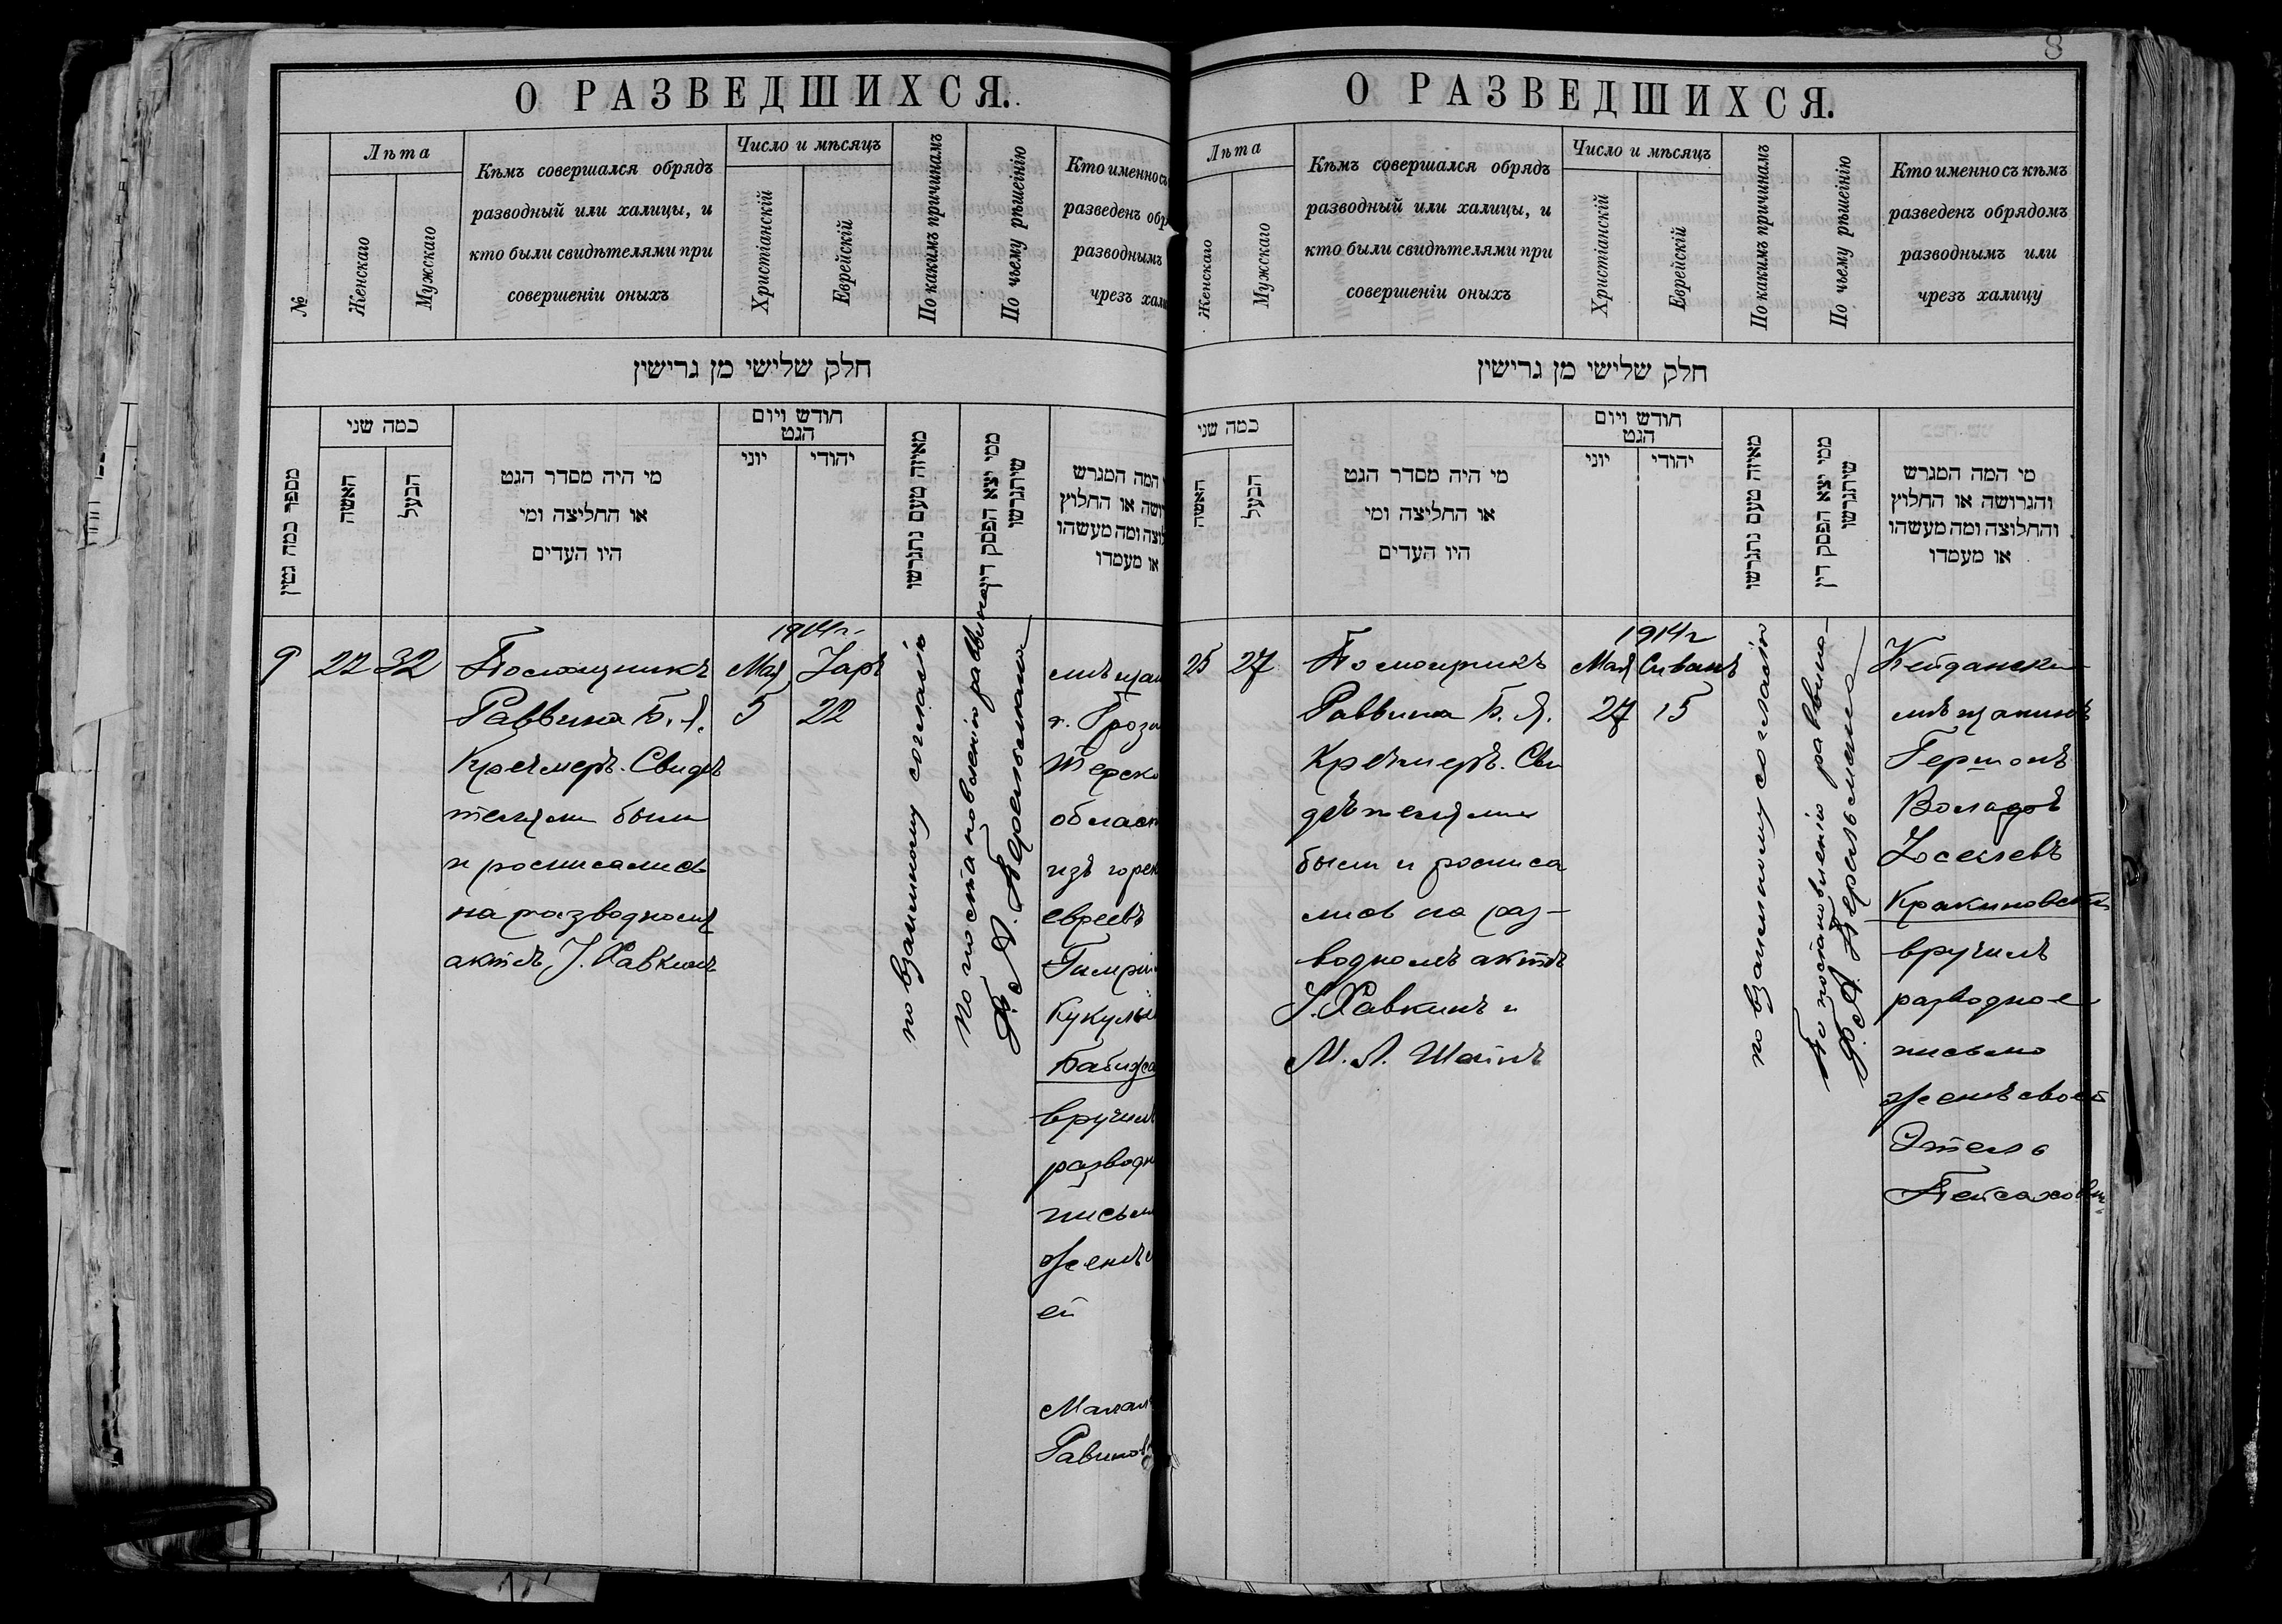 8
О РАЗВЕДШИХСЯ.
№
Лѣта
Женскаго
Мужскаго
Кѣмъ совершался обрядъ
разводный или халицы, и
кто были свидѣтелями при
совершеніи оныхъ
Число и мѣсяцъ
Христіанскій
Еврейскій
По какимъ причинамъ
По чьему рѣшеінію
Кто именно съ
разведенъ обр
разводнымъ
чрезъ хали
חלק שלישי מן גרישין
מספר כמה גטין
כמה שני
האשה
הבעל
מי היה מסדר הגט
או החליצה ומי
היו העדים
חודש ויום
הגט
יוני
יהודי
מאיזה טעם נתגרשו
ממי יצא הפסק דין
שיתגרשו
המה המגרש
ושה או החלוץ
לוצה ומה מעשהו
או מעמדו
9
22
32
Помощникъ
Раввина Б. Я.
Кречмеръ. Свидѣ
телями были
и росписались
на разводномъ
актѣ, І. Хавкинъ
1914 г.
Мая
Іаръ
5
22
по взаимному согласію
По постановленію раввина
Ф. А. Перельмана
мѣщан
г. Грозн
Терско
област
изъ горск
евреевъ
Гилри
Кукулы
Бабиджа
вручилъ
разводн
письм
женѣ с
ей
Малал
Равинов
О РАЗВЕДШИХСЯ.
Лѣта
Женскаго
Мужскаго
Кѣмъ совершался обрядъ
разводный или халицы, и
кто были свидѣтелями при
совершеніи оныхъ
Число и мѣсяцъ
Христіанскій
Еврейскій
По какимъ причинамъ
По чьему рѣшеінію
Кто именно съ кѣмъ
разведенъ обрядомъ
разводнымъ или
чрезъ халицу
חלק שלישי מן גרישין
כמה שני
האשה
הבעל
מי היה מסדר הגט
או החליצה ומי
היו העדים
חודש ויום
הגט
יוני
יהודי
מאיזה טעם נתגרשו
ממי יצא הפסק דין
שיתגרשו
מי המה המגרש
והגרושה או החלוץ
והחלוצה ומה מעשהו
או מעמדו
25
27
Помощникъ
Раввина Б. Я.
Кречмеръ. Сви
дѣтелями
были и росписа
лись на раз-
водномъ актѣ
І. Хавкинъ и
М. Л. Шайнъ
1914 г
Мая
Сиванъ
27
15
по взаимному согласію
По постановленію раввина-
Ф. А. Перельмана
Кейданскі
мѣщанинъ
Гершонъ
Вольфъ
Іоселевъ
Кракиновскій
вручилъ
разводное
письмо
женѣ своей
Этель
Пейсаховнѣ